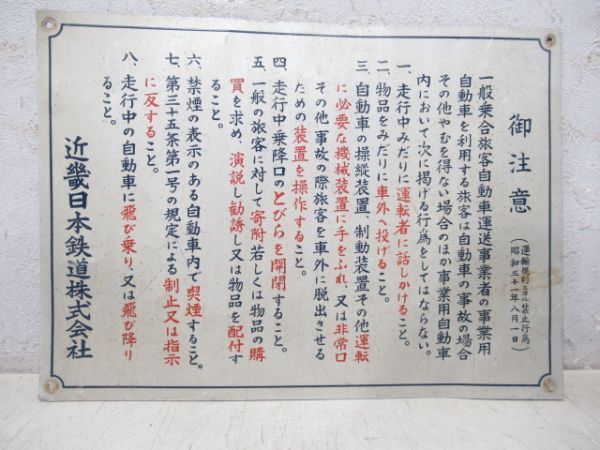 御注意
(運輸規則ニヨル禁止行為
昭和三十一年八月一日)
一般乗合旅客自動車運送事業者の事業用
自動車を利用する旅客は自動車の事故の場合
その他やむを得ない場合のほか事業用自動車
内において次に掲げる行為をしてはならない。
一、走行中みだりに運転者に話しかけること。
二、物品をみだりに車外へ投げること。
三、自動車の操縦装置、制動装置その他運転
に必要な機械装置に手をふれ、又は非常口
その他事故の際旅客を車外に脱出させる
ための装置を操作すること。
四、走行中乗降口のとびらを開閉すること。
五、一般の旅客に対して寄附若しくは物品の購
買を求め、演説し勧誘し又は物品を配付す
ること。
六、禁煙の表示のある自動車内で喫煙すること。
七、第三十五条第一号の規定による制止又は指示
に反すること。
八、走行中の自動車に飛び乗り、又は飛び降り
ること。
近畿日本鉄道株式会社